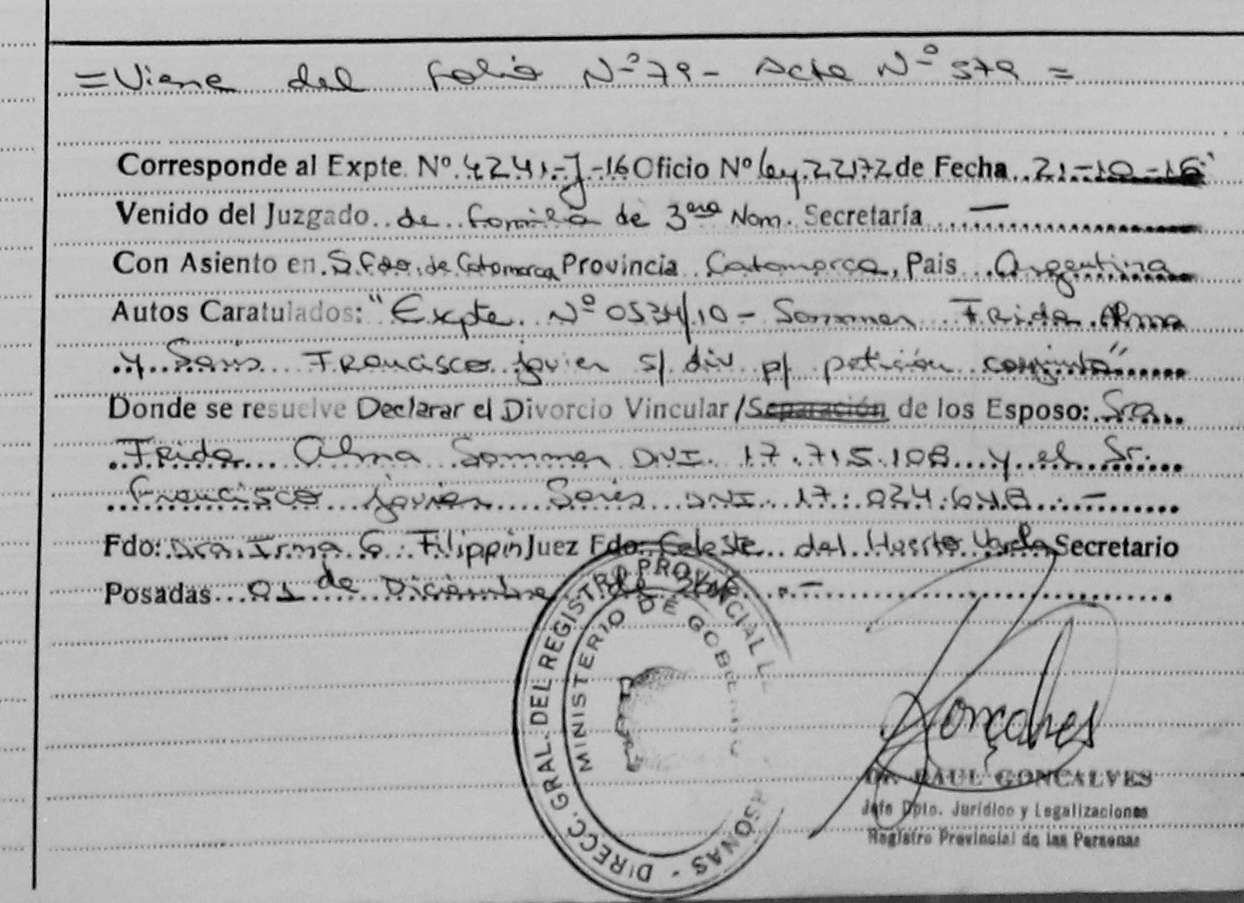 = Viene del folio Nº 79 - Acta Nº 579 =
Corresponde al Expte. Nº 4241-J-16 Oficio Nº Ley 22172 de Fecha 21-10-16
Venido del Juzgado de familia de 3era Nom. Secretaría —
Con Asiento en S.Fdo. de Catamarca Provincia Catamarca, Pais Argentina
Autos Caratulados: "Expte. Nº 0534/10 - Sommer Frida Alma
y Saris Francisco Javier s/ div p/ petición conjunta"
Donde se resuelve Declarar el Divorcio Vincular/Separación de los Esposo: Sra.
Frida Alma Sommer DNI. 17.715.108 y el Sr.
Francisco Javier Saris DNI. 17.034.648 . -
Fdo: Dra. Irma G. Filippin Juez Fdo: Celeste del Huerto Secretario
Posadas 01 de Diciembre de . -
DIRECC. GRAL. DEL REGISTRO PROVINCIAL
MINISTERIO DE GOBIERNO
Goncalves
DR. RAUL GONCALVES
Jefe Dpto. Jurídico y Legalizaciones
Registro Provincial de las Personas